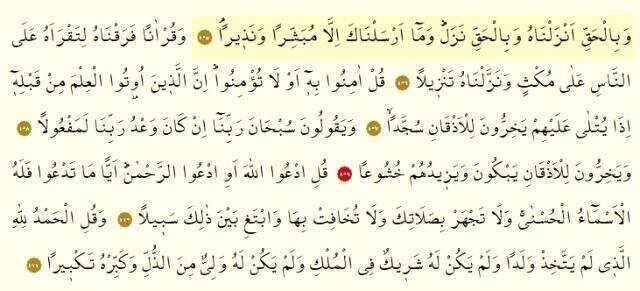 وَبِالْحَقِّ اَنْزَلْنَاهُ وَبِالْحَقِّ نَزَلَۜ وَمَٓا اَرْسَلْنَاكَ اِلَّا مُبَشِّرًا وَنَذ۪يرًاۢ ﴿١٠٥﴾ وَقُرْاٰنًا فَرَقْنَاهُ لِتَقْرَاَهُ عَلَى
النَّاسِ عَلٰى مُكْثٍ وَنَزَّلْنَاهُ تَنْز۪يلًا ﴿١٠٦﴾ قُلْ اٰمِنُوا بِه۪ٓ اَوْ لَا تُؤْمِنُواۜ اِنَّ الَّذ۪ينَ اُو۫تُوا الْعِلْمَ مِنْ قَبْلِه۪ٓ
اِذَا يُتْلٰى عَلَيْهِمْ يَخِرُّونَ لِلْاَذْقَانِ سُجَّدًاۙ ﴿١٠٧﴾ وَيَقُولُونَ سُبْحَانَ رَبِّنَٓا اِنْ كَانَ وَعْدُ رَبِّنَا لَمَفْعُولًا ﴿١٠٨﴾
وَيَخِرُّونَ لِلْاَذْقَانِ يَبْكُونَ وَيَز۪يدُهُمْ خُشُوعًا ﴿١٠٩﴾ قُلِ ادْعُوا اللّٰهَ اَوِ ادْعُوا الرَّحْمٰنَۜ اَيًّا مَا تَدْعُوا فَلَهُ
الْاَسْمَٓاءُ الْحُسْنٰىۚ وَلَا تَجْهَرْ بِصَلَاتِكَ وَلَا تُخَافِتْ بِهَا وَابْتَغِ بَيْنَ ذٰلِكَ سَب۪يلًا ﴿١١٠﴾ وَقُلِ الْحَمْدُ لِلّٰهِ
الَّذ۪ي لَمْ يَتَّخِذْ وَلَدًا وَلَمْ يَكُنْ لَهُ شَر۪يكٌ فِي الْمُلْكِ وَلَمْ يَكُنْ لَهُ وَلِيٌّ مِنَ الذُّلِّ وَكَبِّرْهُ تَكْب۪يرًا ﴿١١١﴾